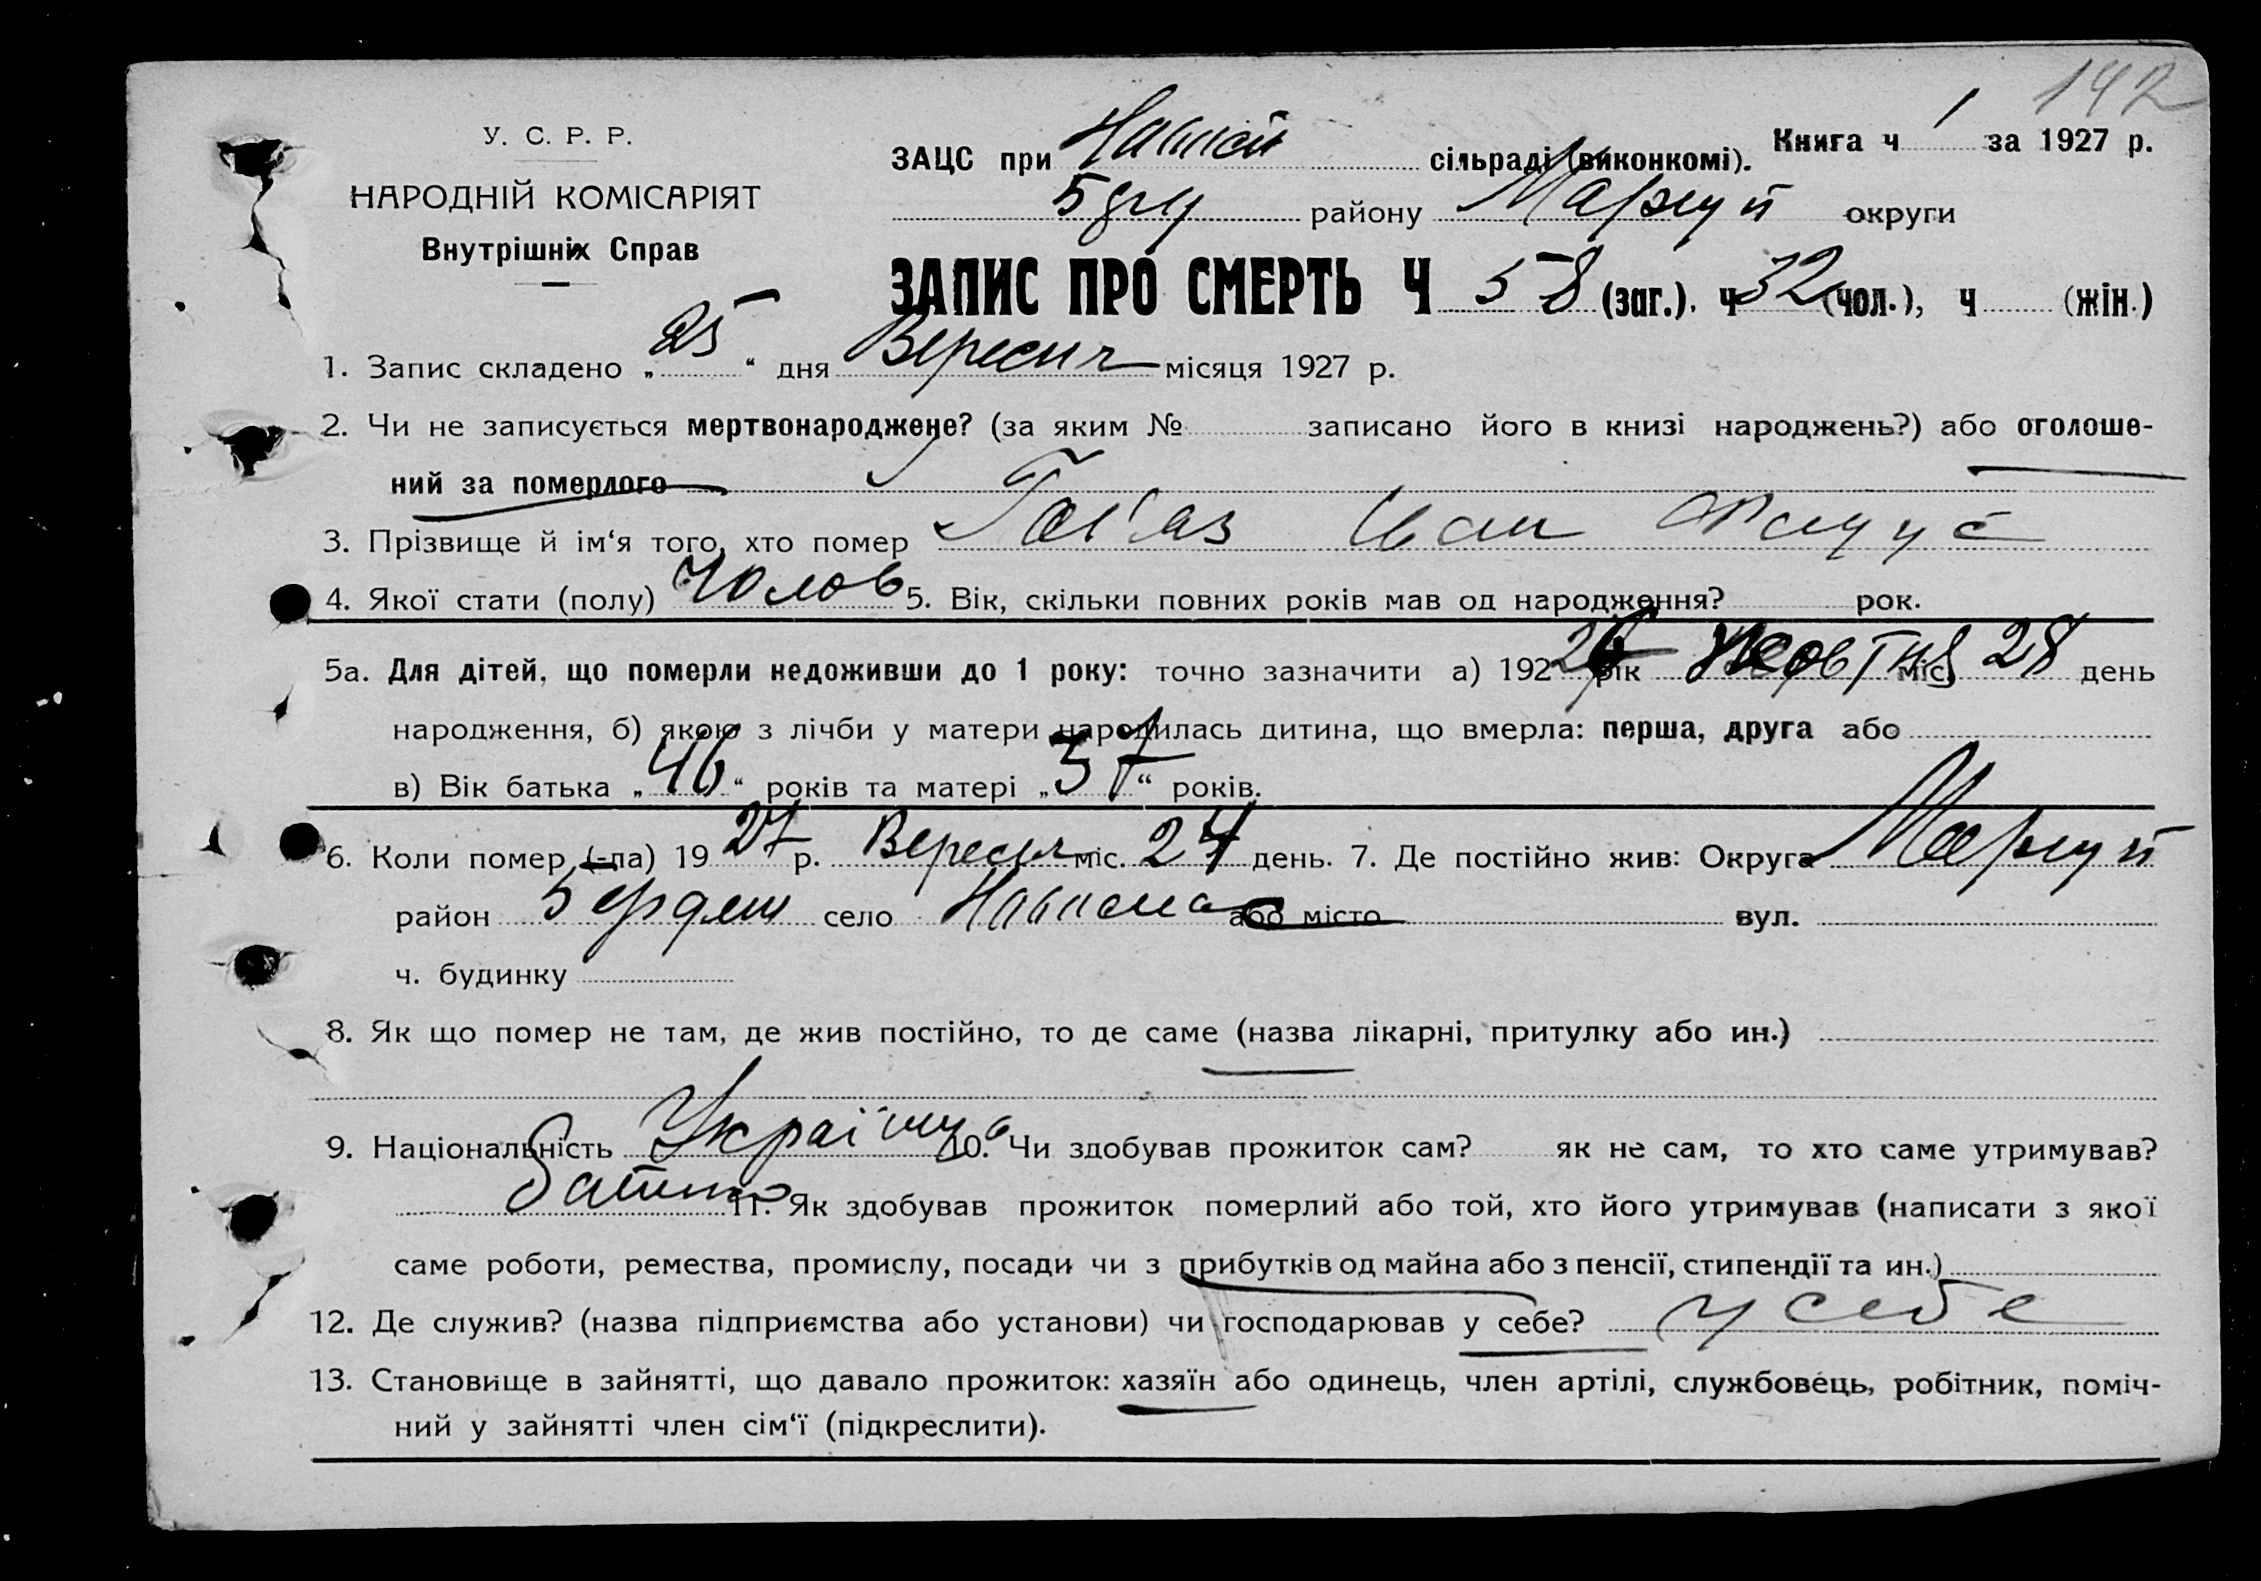 142
У. С. Р. Р.
НАРОДНІЙ КОМІСАРІЯТ
Внутрішніх Справ
Книга ч 1 за 1927 р.
ЗАЦС при сільраді (виконкомі).
району Маріуп округи
ЗАПИС ПРО СМЕРТЬ Ч 58 (заг.), ч 32 (чол.), ч (жін.)
1. Запис складено „25“ дня Вересня місяця 1927 р.
2. Чи не записується мертвонароджене? (за яким № записано його в книзі народжень?) або оголоше-
ний за померлого
3. Прізвище й ім‘я того, хто помер Іван
4. Якої стати (полу) Чолов 5. Вік, скільки повних років мав од народження? рок.
5а. Для дітей, що померли недоживши до 1 року: точно зазначити а) 192 26 рік Жовтня міс. 28 день
народження, б) якою з лічби у матери народилась дитина, що вмерла: перша, друга або
в) Вік батька „46“ років та матері „37“ років.
6. Коли помер (-ла) 1927 р. Вересня міс. 24 день. 7. Де постійно жив: Округа Маріуп
район село або місто вул.
ч. будинку
8. Як що помер не там, де жив постійно, то де саме (назва лікарні, притулку або ин.)
9. Національність 10. Чи здобував прожиток сам? як не сам, то хто саме утримував?
батько 11. Як здобував прожиток померлий або той, хто його утримував (написати з якої
саме роботи, ремества, промислу, посади чи з прибутків од майна або з пенсії, стипендії та ин.)
12. Де служив? (назва підприємства або установи) чи господарював у себе? у себе
13. Становище в зайнятті, що давало прожиток: хазяїн або одинець, член артілі, службовець, робітник, поміч-
ний у зайнятті член сім‘ї (підкреслити).